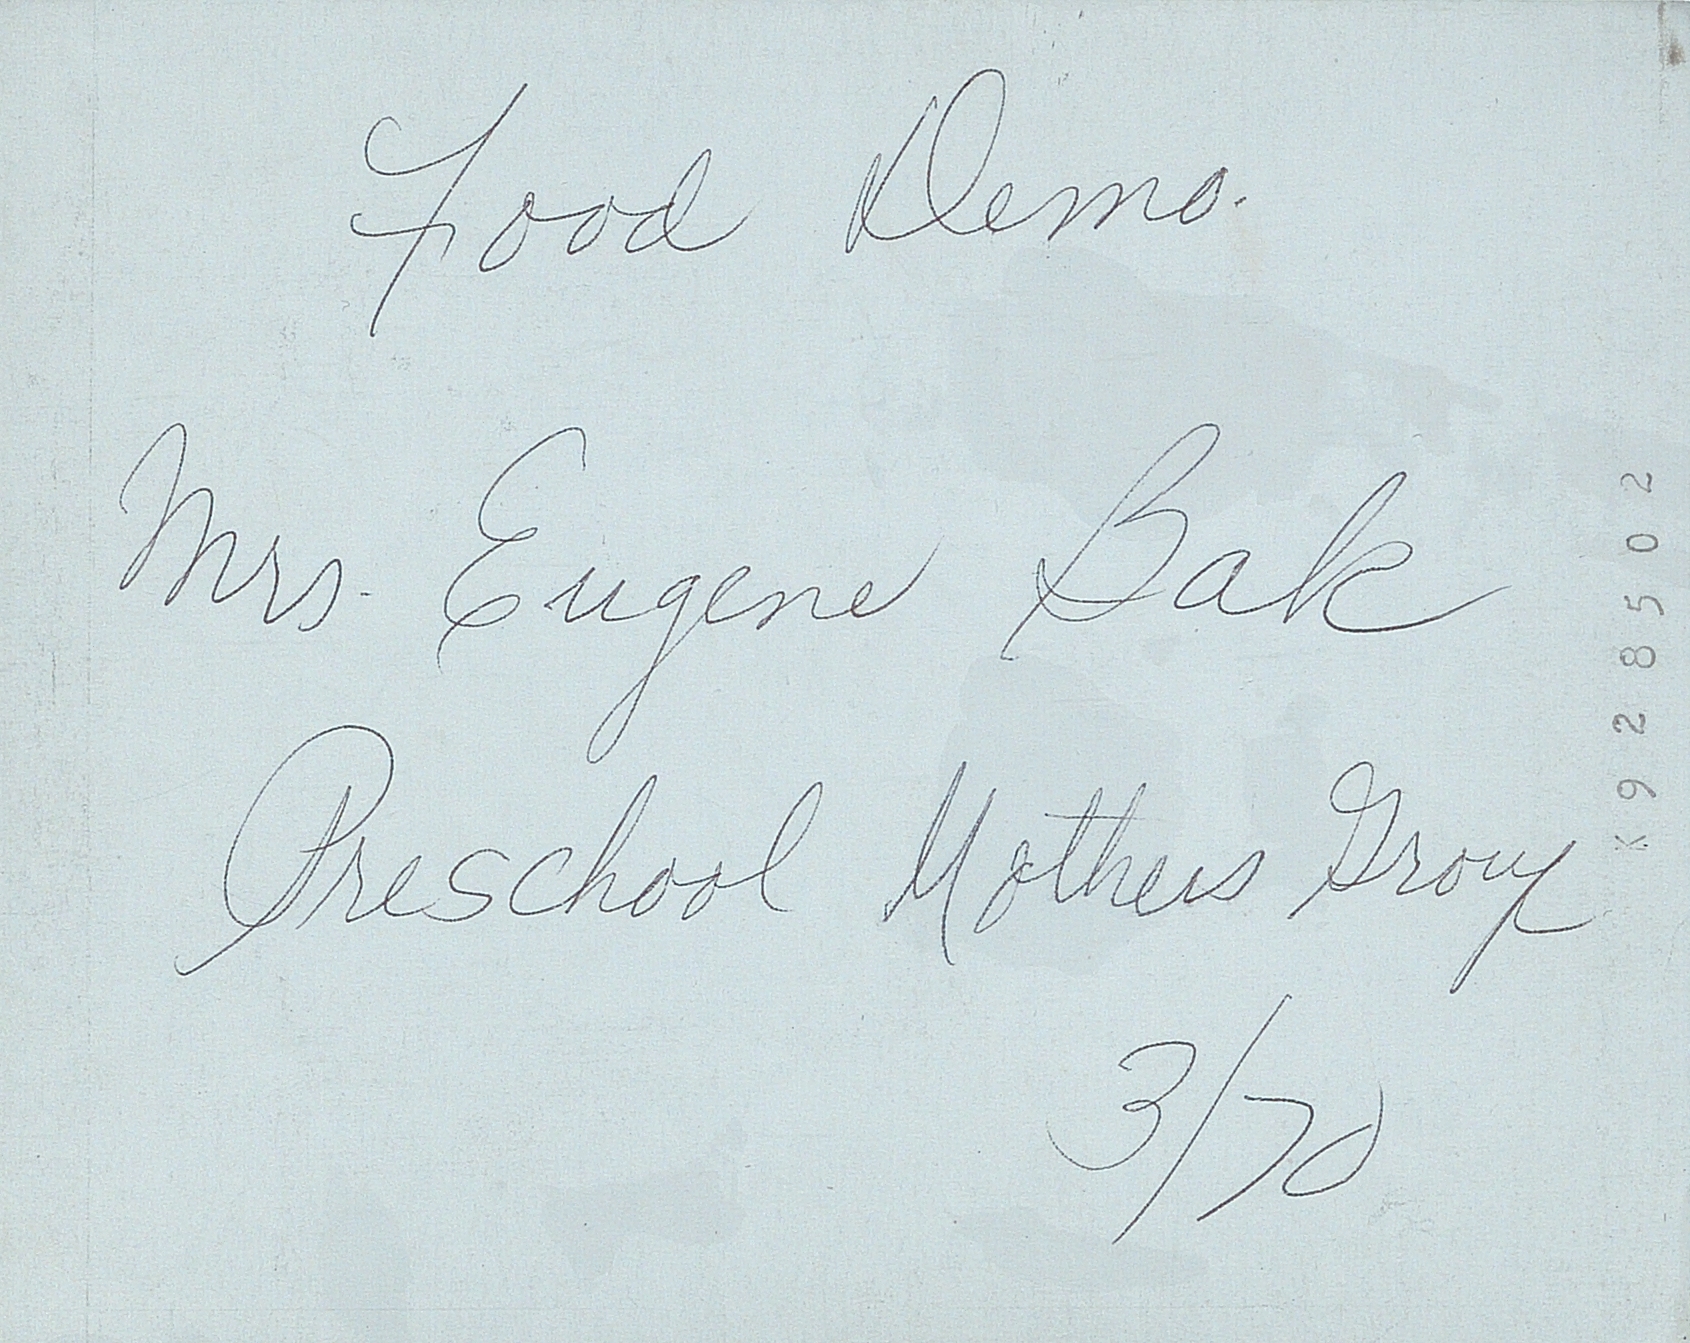 Food Demo.
Mrs. Eugene Bak
Preschool Mothers Group
3/70
K928502